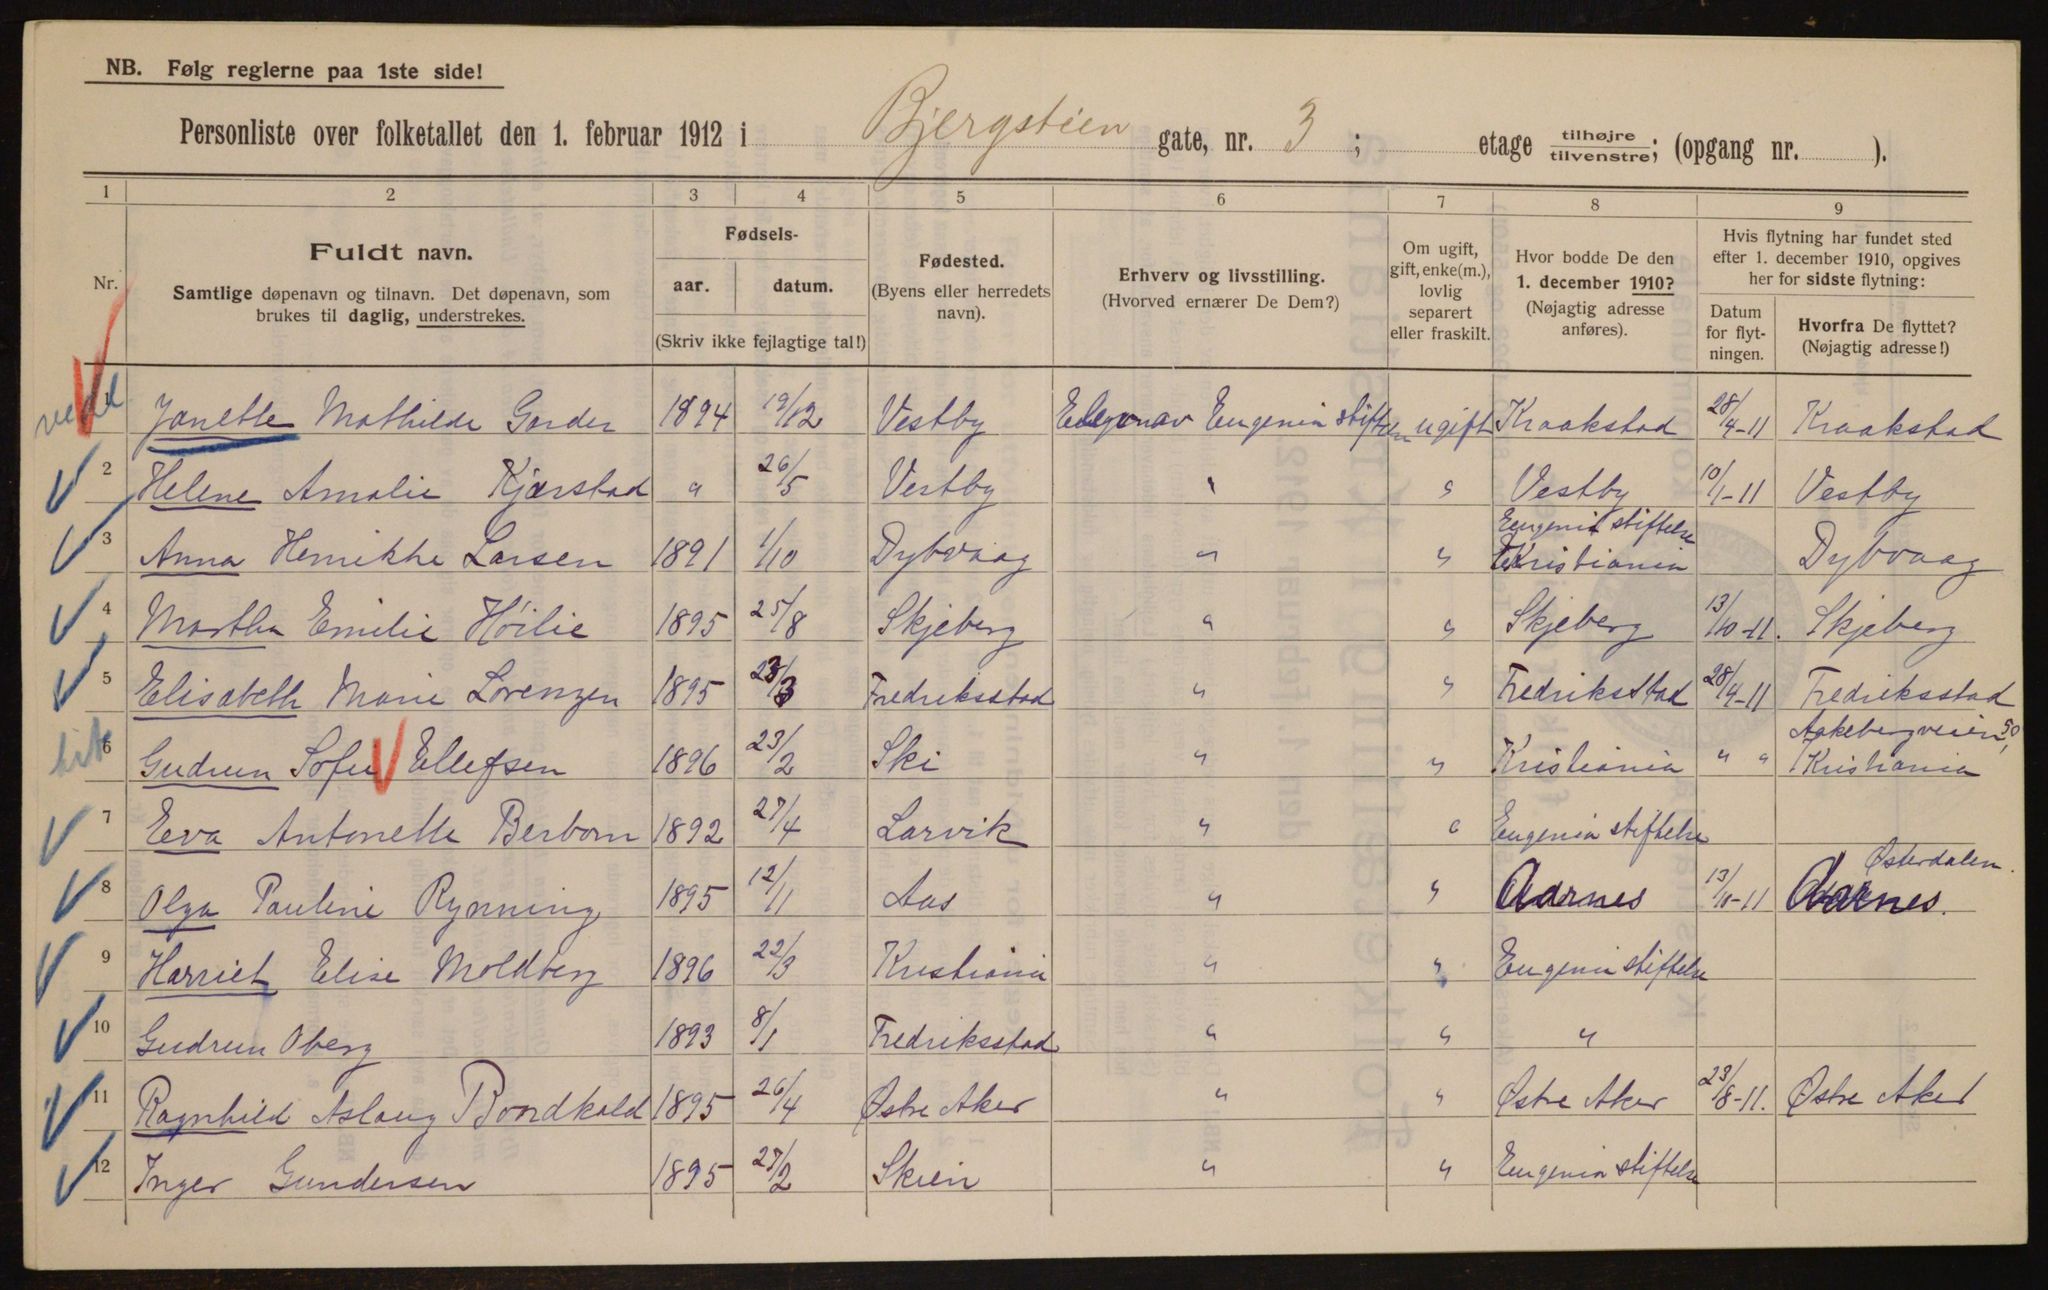 NB. Følg reglerne paa 1ste side!
Personliste over folketallet den 1. februar 1912 i Bjergstien gate, nr. 3 ; etage tilhøjre tilvenstre; (opgang nr. ).
1 2 3 4 5 6 7 8 9
Nr.
Fuldt navn.
Samtlige døpenavn og tilnavn. Det døpenavn, som
brukes til daglig, understrekes.
Fødsels-
aar. datum.
(Skriv ikke fejlagtige tal!)
Fødested.
(Byens eller herredets
navn).
Erhverv og livsstilling.
(Hvorved ernærer De Dem?)
Om ugift,
gift, enke(m.),
lovlig
separert
eller fraskilt.
Hvor bodde De den
1. december 1910?
(Nøjagtig adresse
anføres).
Hvis flytning har fundet sted
efter 1. december 1910, opgives
her for sidste flytning:
Datum
for flyt-
ningen.
Hvorfra De flyttet?
(Nøjagtig adresse!)
Janette Mathilde Garder 1894 19/12 Vestby Elev av Eugenia stiftelse ugift Kraakstad 28/4-11 Kraakstad
2 Helene Amalie Kjærstad " 26/5 Vestby " " Vestby 10/1-11 Vestby
Eugenia stiftelse
3 Anna Henrikke Larsen 1891 1/10 Dybvaag " " Kristiania Dybvaag
4 Martha Emilie Höilie 1895 25/8 Skjeberg " " Skjeberg 13/10-11. Skjeberg
5 Elisabeth Marie Lorenzen 1895 23/3 Fredriksstad " " Fredriksstad 28/4-11 Fredriksstad
Aakebergveien 50,
6 Gudrun Sofie Ellefsen 1896 23/2 Ski " " Kristiania " " Kristiania
7 Eva Antonette Berborn 1892 27/4 Larvik " " Eugenia stiftelse
Østerdalen.
8 Olga Pauline Rynning 1895 12/11 Aas " " Aarnes 13/10-11 Aarnes.
9 Harriet Elise Moldberg 1896 22/3 Kristiania " " Eugenia stiftelse
10 Gudrun Oberg 1893 8/1 Fredriksstad " " "
11 Ragnhild Aslaug Bondkald 1895 26/4 Østre Aker " " Østre Aker 23/8-11. Østre Aker
12 Inger Gundersen 1895 27/2 Skien " " Eugenia stiftelse